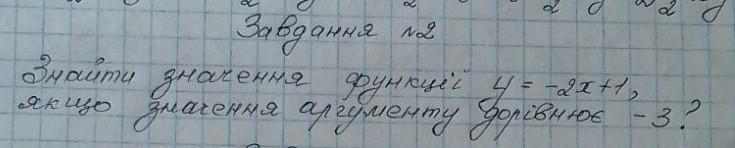 Завдання №2
Знайти значення функції y = -2x+1,
якщо значення аргументу дорівнює -3?